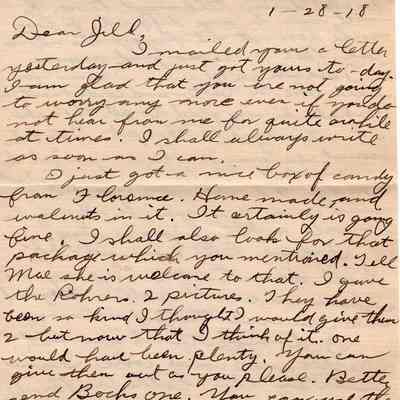 1-28-18
Dear Jill,
I mailed your a letter
yesterday and just got yours to-day.
I am glad that you are not going
to worry any more even if you do
not hear from me for quite awhile
at times. I shall always write
as soon as I can.
I just got a nice box of candy
from Florence. Home made, and
walnuts in it. It certainly is going
fine. I shall also look for that
package which you mentioned. Tell
Mae she is welcome to that. I gave
the Rohrers. 2 pictures. They have
been so kind I thought I would give them
2 but now that I think of it. one
would have been plenty. You can
give them out as you please. Better
send Bochs one. You